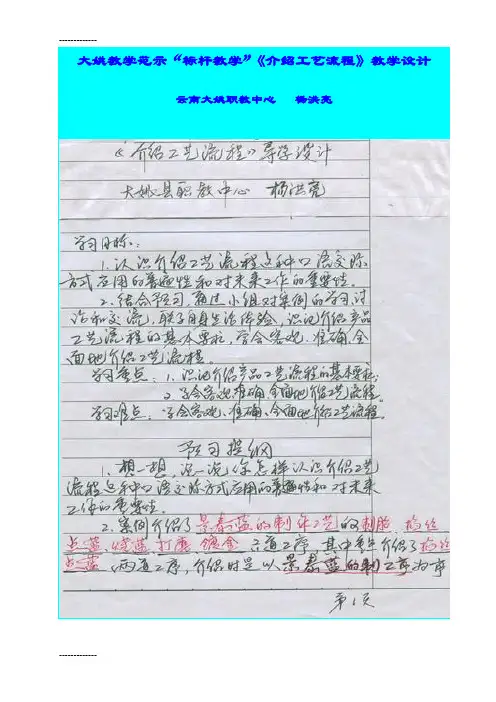 --------------
大姚教学范示“标杆教学”《介绍工艺流程》教学设计
云南大姚职教中心 杨洪亮
《介绍工艺流程》导学设计
大姚县职教中心 杨洪亮
学习目标:
1.认识介绍工艺流程这种口语交际
方式应用的普遍性和对未来工作的重要性。
2.结合预习,通过小组对案例的学习,讨
论和交流,联系自身生活体验,识记介绍产品
工艺流程的基本要求,学会客观、准确、全
面地介绍工艺流程。
学习重点:1、识记介绍产品工艺流程的基本要求;
2、学会客观、准确、全面地介绍工艺流程。
学习难点:学会客观、准确、全面地介绍工艺流程。
预习提纲
1、想一想,说一说,你怎样认识介绍工艺
流程这种口语交际方式应用的普遍性和对未来
工作的重要性。
2、案例介绍了景泰蓝的制作工艺的制胎、掐丝
点蓝、烧蓝、打磨、镀金六道工序,其中重点介绍了掐丝
点蓝、两道工序,介绍时是以景泰蓝的制工序为序
第1页
--------------